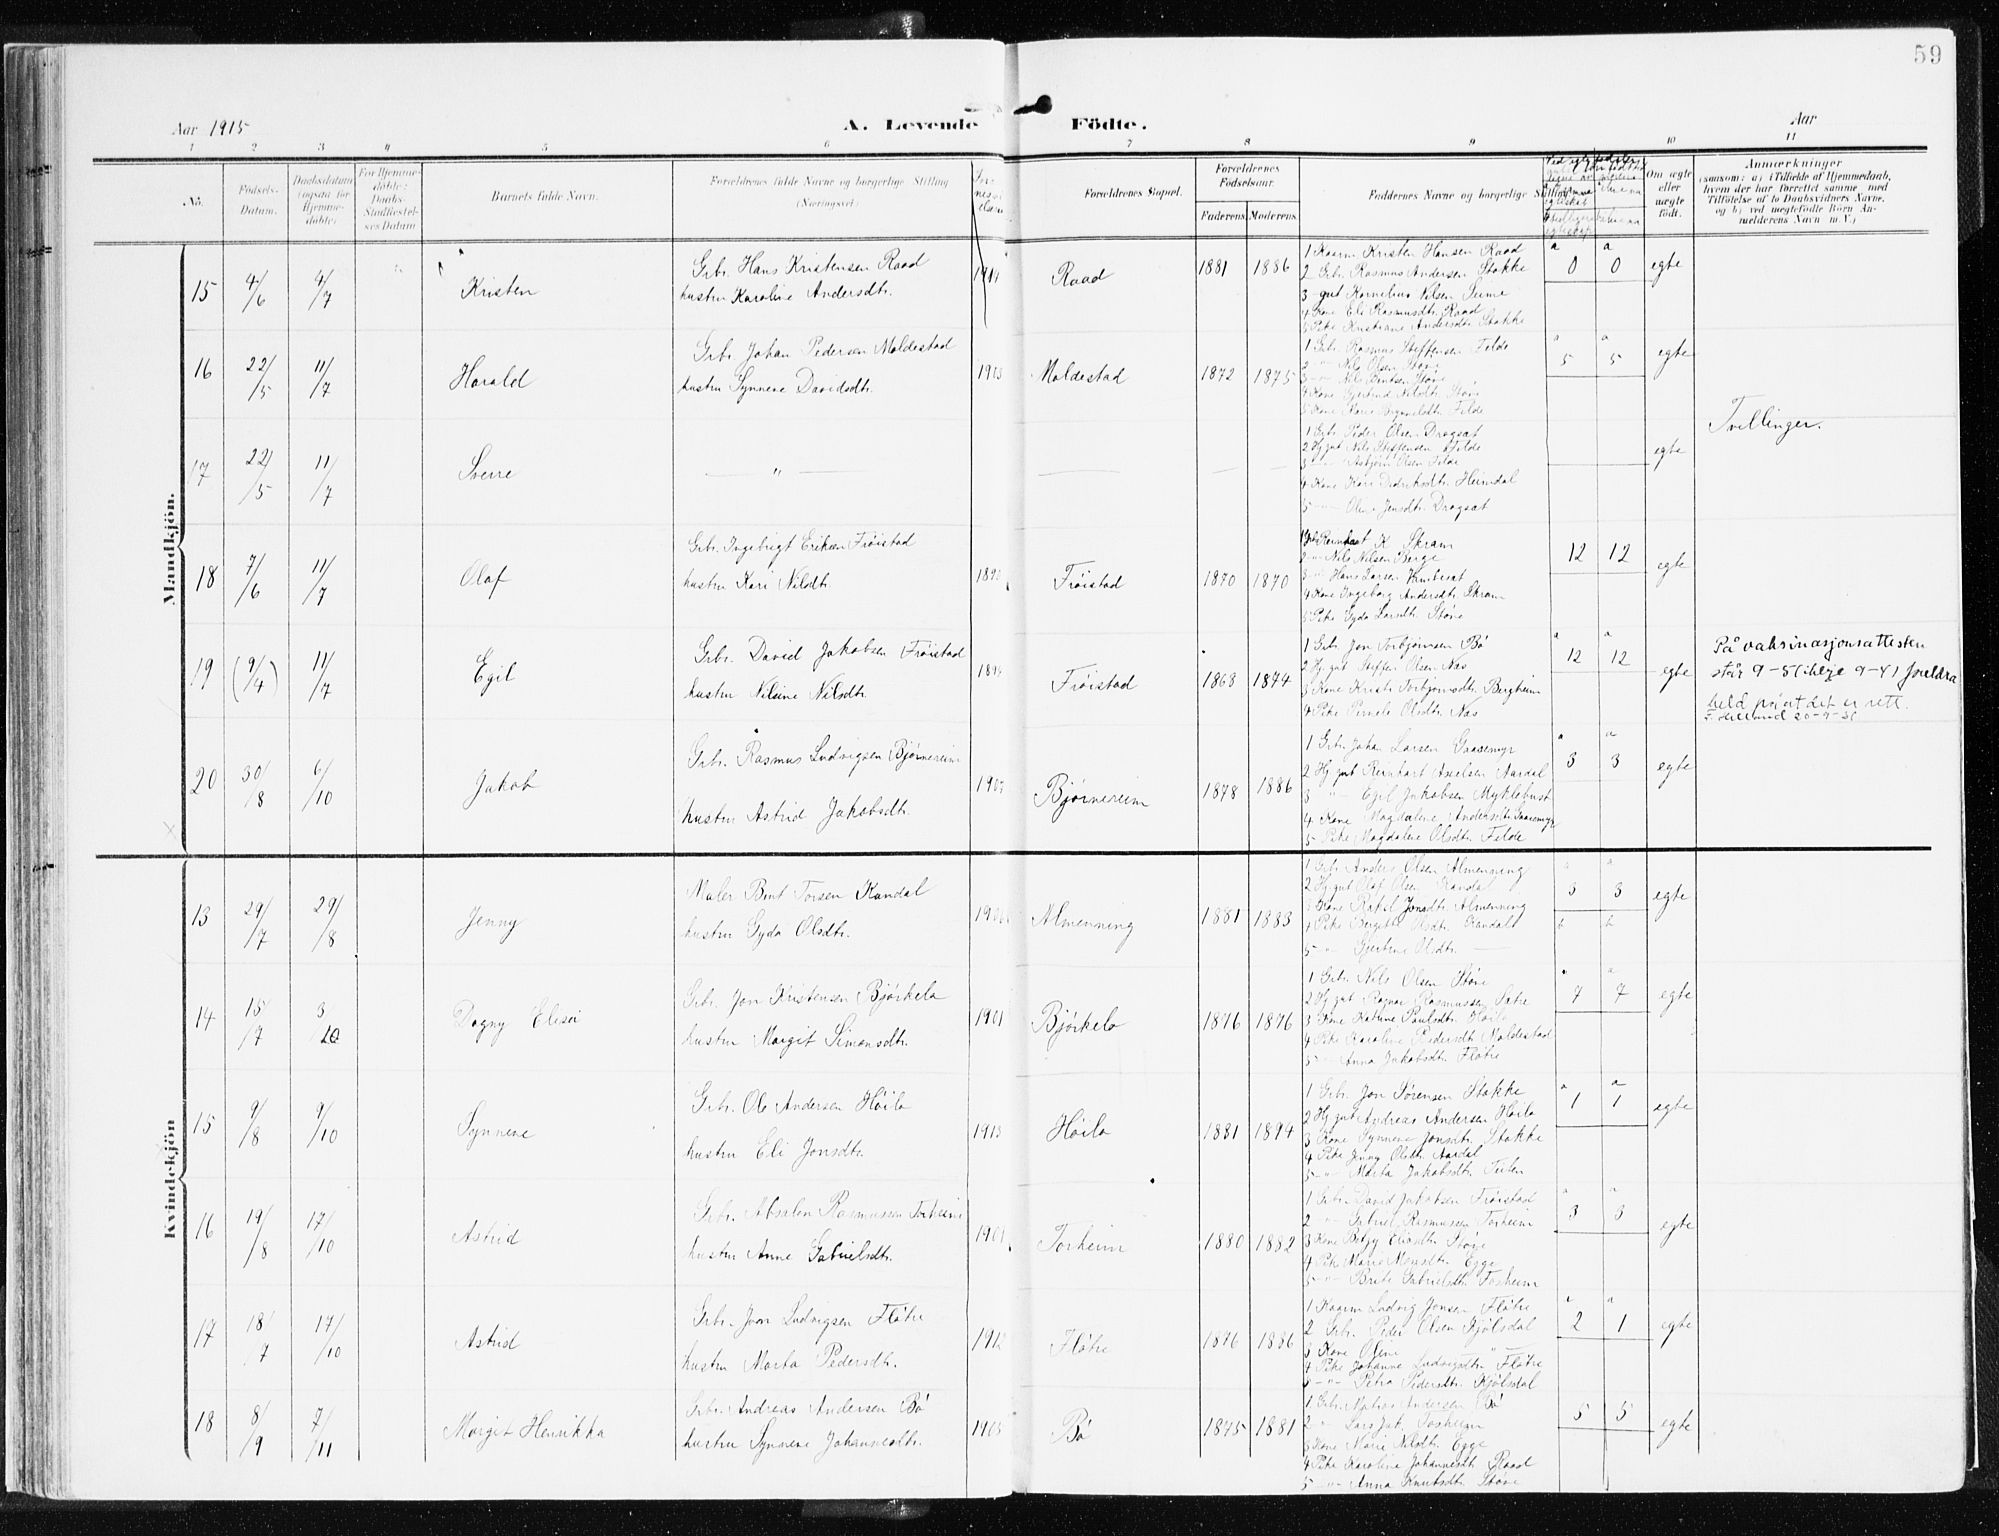 59
Aar 1915
A. Levende Födte.
Aar
1 2 3 4 5 6 7 8 9 10 11
No.
Födsels-Datum.
Daabsdatum (ogsaa for Hjemmedöbte).
For Hjemmedöbte: Daabs-Stadfæstelses Datum
Barnets fulde Navn.
Forældrenes fulde Navne og borgerlige Stilling (Næringsvei)
Forældrenes Bopæl.
Forældrenes Födselsaar.
Faderens. Moderens.
Faddernes Navne og borgerlige Stilling
Om ægte eller uægte födt.
Anmærkninger
(saasom: a) i Tilfælde af Hjemmedaab, hvem der har forrettet samme, med Tilföielse af to Daabsvidners Navne, og b) ved uegtefödte Börn Anmelderens Navn m. V.)
Mandkjön.
15 4/6 4/7 Kristen
Grbr. Hans Kristensen Raad
hustru Karoline Andersdtr.
Raad 1881 1886
1 Kaarm. Kristen Hansen Raad
2 Grbr. Rasmus Andersen Stokke
3 gut Kornelius Nilsen Seime
4 Kone Eli Rasmusdtr. Raad
5 Pike Kristiane Andersdtr. Stokke
a a
0 0 egte
16 22/5 11/7 Harald
Grbr. Johan Pedersen Moldestad
hustru Synneve Davidsdtr.
1913 Moldestad 1872 1875
1 Grbr. Rasmus Steffensen Felde
2 -"- Nils Olsen Støve
3 -"- Nils Bentsen Støve
4 Kone Gjertrud Nilsdtr. Støve
5 Kone Kari Brynnelsdtr. Felde
a a
5 5 egte
Tvillinger.
17 22/5 11/7 Sverre
— " —
1 Grbr. Peder Olsen Dragsæt
2 Hj. gut Nils Steffensen Felde
3 -"- Asbjørn Olsen Felde
4 Kone Kari Didriksdtr. Heimdal
5 -"- Oline Jensdtr. Dragsæt
egte
18 7/6 11/7 Olaf
Grbr. Ingebrigt Eriksen Frøistad
hustru Kari Nilsdtr.
Frøistad 1870 1870
1 Grbr. Reinhart K Skram
2 -"- Nils Nilsen Berge
3 -"- Hans Larsen
4 Kone Ingeborg Andersdtr. Skram
5 Pike Gyda Larsdtr. Støve
12 12 egte
19 (9/4) 11/7 Egil
Grbr. David Jakobsen Frøistad
hustru Nilsine Nilsdtr.
Frøistad 1868 1874
1 Grbr. Jon Torbjørnsen Bø
2 Hj. gut Steffen Olsen Nos
3 Kone Kristi Torbjørnsdtr. Bergheim
4 Pike Pernele Olsdtr. Nos
a a
12 12 egte
På vaksinasjonsattesten
står 9-5 (ikkje 9-4) foreldra
held på at det er rett.
20 30/8 6/10 Jakob
Grbr. Rasmus Ludvigsen Bjørnereim
hustru Astrid Jakobsdtr.
Bjørnereim 1878 1886
1 Grbr. Johan Larsen Gaasemyr
2 Hj. gut Reinhart Akselsen Aardal
3 -"- Egil Jakobsen Myklebust
4 Kone Magdalene Andersdtr. Gaasemyr
5 Pike Magdalene Olsdtr. Felde
a a
3 3 egte
Kvindekjön
13 29/7 29/8 Jenny
Maler Bent Torsen Kandal
hustru Gyda Olsdtr.
Almenning 1881 1883
1 Grbr. Anders Olsen Almenning
2 Hj. gut Olaf Olsen Kandal
3 Kone Rakel Jonsdtr. Almenning
4 Pike Bergitte Olsdtr. Kandal
5 -"- Gjertine Olsdtr. —
a a
3 3 egte
b b
14 15/7 3/10 Dagny Elisoi
Grbr. Jon Kristensen Bjørkelo
hustru Margit Simonsdtr.
1901 Bjørkelo 1876 1876
1 Grbr. Nils Olsen Støve
2 Hj. gut Ragnar Rasmussen Sætre
3 Kone Katrine Paulsdtr. Høilo
4 Pike Karoline Pedersdtr. Moldestad
5 -"- Anna Jakobsdtr. Fløtre
a a
7 7 egte
15 9/8 9/10 Synneve
Grbr. Ole Andersen Høilo
hustru Eli Jonsdtr.
1913 Høilo 1881 1894
1 Grbr. Jon Sørensen Stokke
2 Hj. gut Andreas Andersen Høilo
3 Kone Synneve Jonsdtr. Stokke
4 Pike Jenny Olsdtr. Aardal
5 -"- Marta Jakobsdtr.
a a
1 1 egte
16 19/8 17/10 Astrid
Grbr. Absalon Rasmussen Forheim
hustru Anne Gabrielsdtr.
1901 Forheim 1880 1882
1 Grbr. David Jakobsen Frøistad
2 -"- Gabriel Rasmussen Forheim
3 Kone Betzy Eliasdtr. Støve
4 Pike Marie Monsdtr. Egge
5 -"- Brite Gabrielsdtr. Forheim
a a
3 3 egte
17 18/7 17/10 Astrid
Grbr. Jon Ludvigsen Fløtre
hustru Marta Pedersdtr.
1912 Fløtre 1876 1886
1 Kaarm. Ludvig Jonsen Fløtre
2 Grbr. Peder Olsen Kjølsdal
3 Kone Oline — " —
4 Pike Johanne Ludvigsdtr. Fløtre
5 -"- Petra Pedersdtr. Kjølsdal
a a
2 1 egte
18 8/9 7/11 Margit Henrikka
Grbr. Andreas Andersen Bø
hustru Synneve Johannesdtr.
1905 Bø 1875 1881
1 Grbr. Matias Andersen Bø
2 -"- Lars Jak. Forheim
3 Kone Marie Nilsdtr. Egge
4 Pike Karoline Johannesdtr. Raad
5 -"- Anna Knutsdtr. Støve
5 5 egte